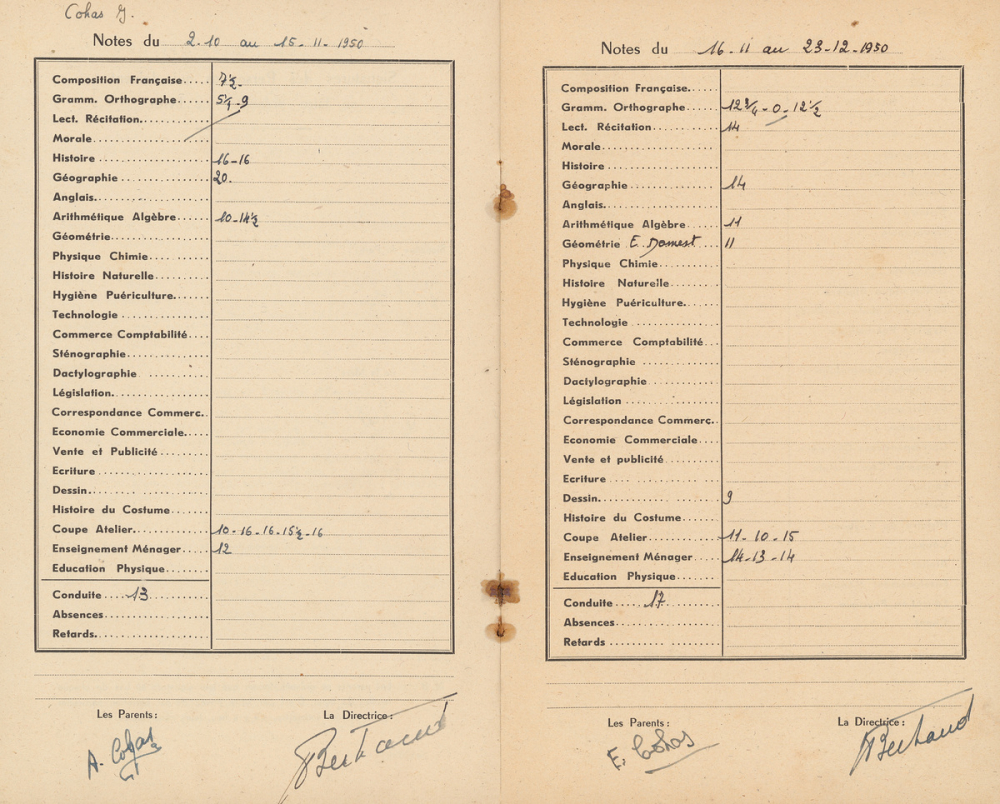 Cohas G.
Notes du 2.10 au 15-11-1950
Composition Française 7½
Gramm. Orthographe 5¼-9
Lect. Récitation
Morale
Histoire 16-16
Géographie 20.
Anglais
Arithmétique Algèbre 10-14½
Géométrie
Physique Chimie
Histoire Naturelle
Hygiène Puériculture
Technologie
Commerce Comptabilité
Sténographie
Dactylographie
Législation
Correspondance Commerc.
Economie Commerciale
Vente et Publicité
Ecriture
Dessin
Histoire du Costume
Coupe Atelier 10-16-16-15½-16
Enseignement Ménager 12
Education Physique
Conduite 13
Absences
Retards
Les Parents: La Directrice:
A. Cohas Bertrand
Notes du 16-11 au 23-12-1950
Composition Française
Gramm. Orthographe 12¾-0-12½
Lect. Récitation 14
Morale
Histoire
Géographie 14
Anglais
Arithmétique Algèbre 11
Géométrie E. Domest 11
Physique Chimie
Histoire Naturelle
Hygiène Puériculture
Technologie
Commerce Comptabilité
Sténographie
Dactylographie
Législation
Correspondance Commerc.
Economie Commerciale
Vente et publicité
Ecriture
Dessin 9
Histoire du Costume
Coupe Atelier 11-10-15
Enseignement Ménager 14-13-14
Education Physique
Conduite 17
Absences
Retards
Les Parents: La Directrice:
E. Cohas Bertrand